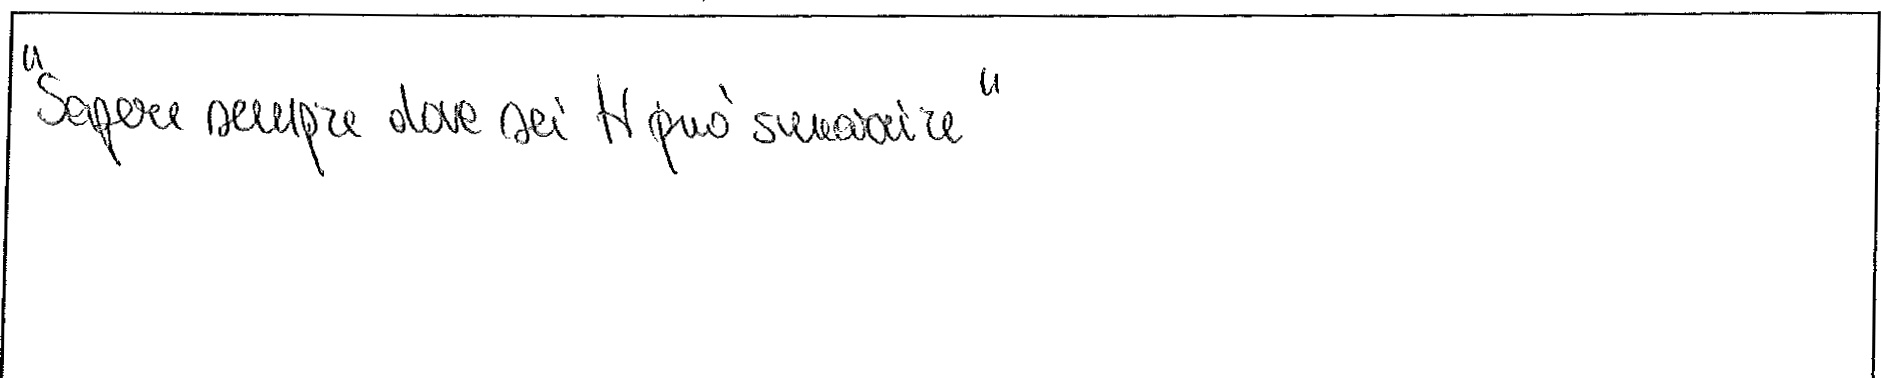 "Sapere sempre dove sei ti può smarrire"